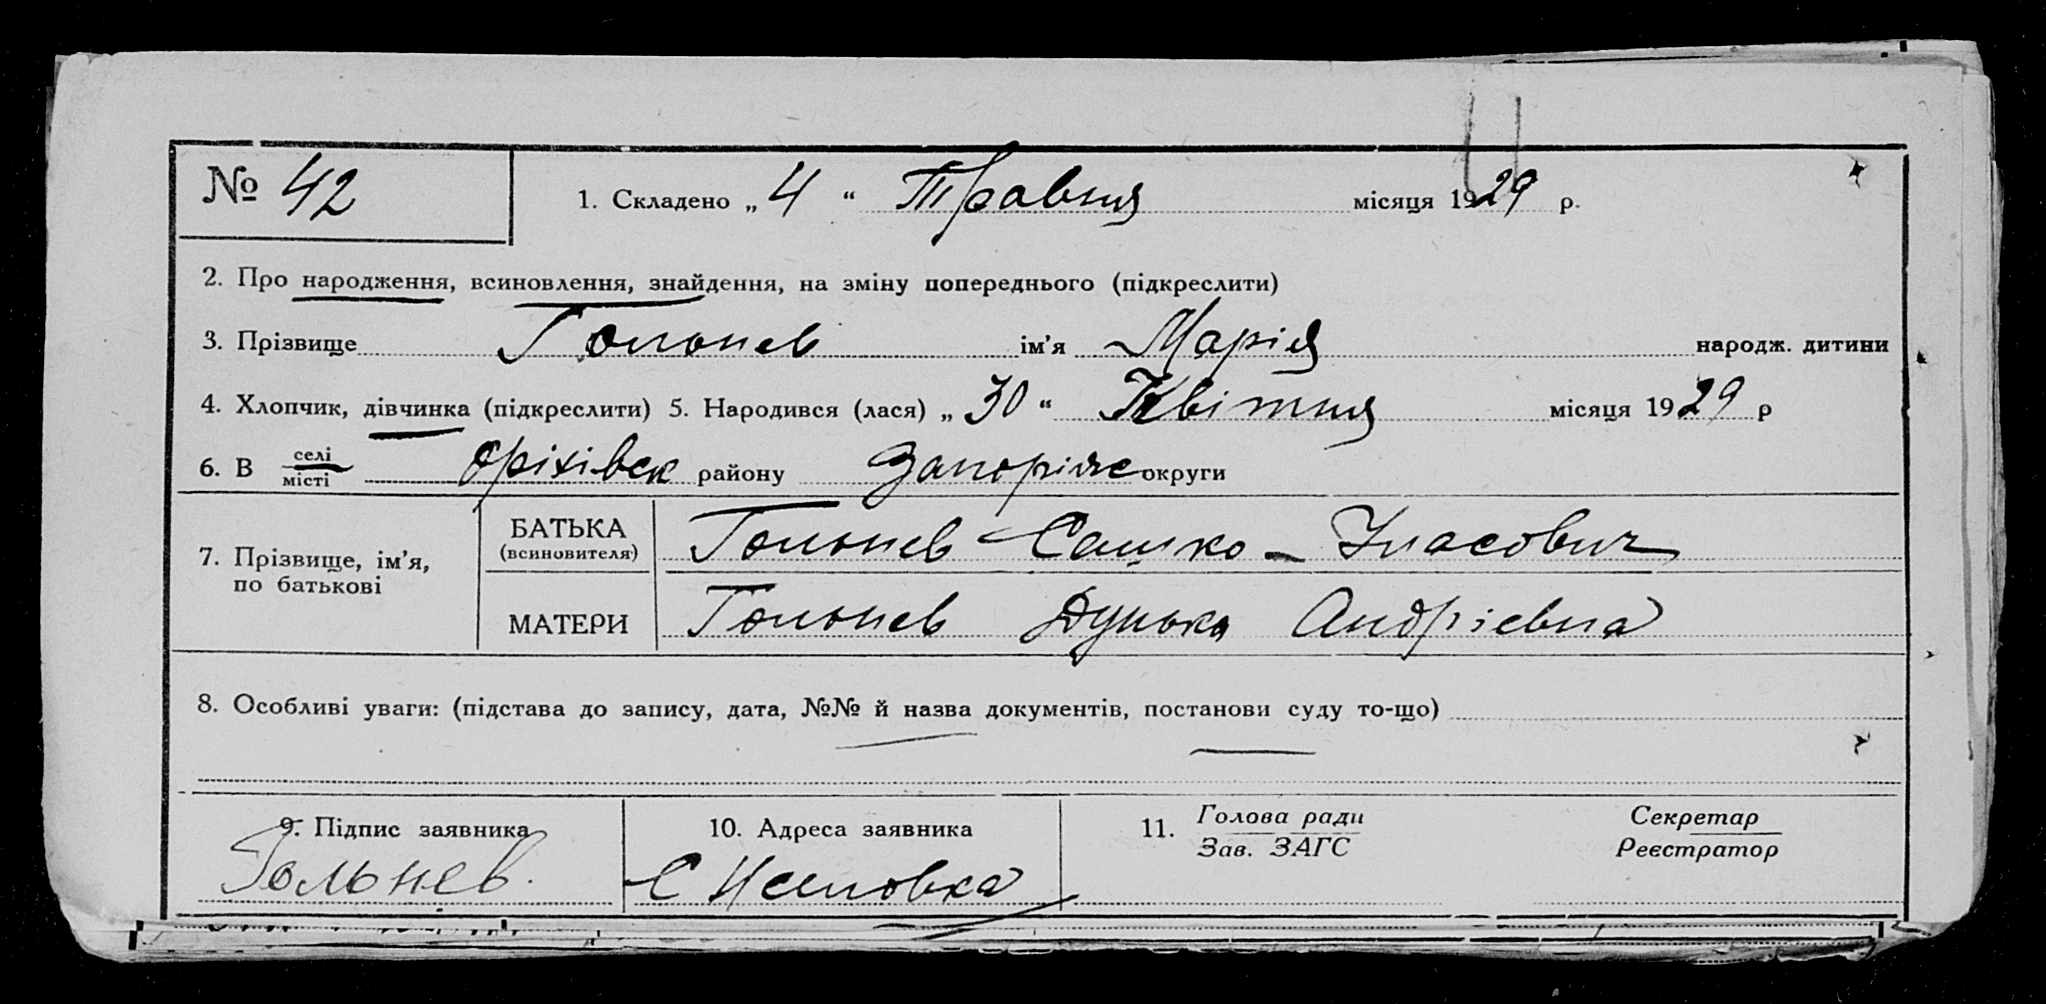 № 42 1. Складено „ 4 “ Травня місяця 1929 р.
2. Про народження, всиновлення, знайдення, на зміну попереднього (підкреслити)
3. Прізвище Гольнев ім'я Марія народж. дитини
4. Хлопчик, дівчинка (підкреслити) 5. Народився (лася) „ 30 “ Квітня місяця 1929 р
6. В селі
місті Оріхівск району Запоріже округи
7. Прізвище, ім'я,
по батькові
БАТЬКА
(всиновителя)
Гольнев Сашко - Уласович
МАТЕРИ Гольнев Дунька Андрієвна
8. Особливі уваги: (підстава до запису, дата, №№ й назва документів, постанови суду то-що)
9. Підпис заявника
Гольнев.
10. Адреса заявника
С
11. Голова ради
Зав. ЗАГС
Секретар
Реєстратор